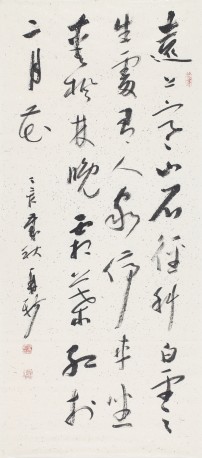 遠上寒山石徑斜白雲
生處有人家停車坐
愛楓林晚霜葉紅於
二月花
秋